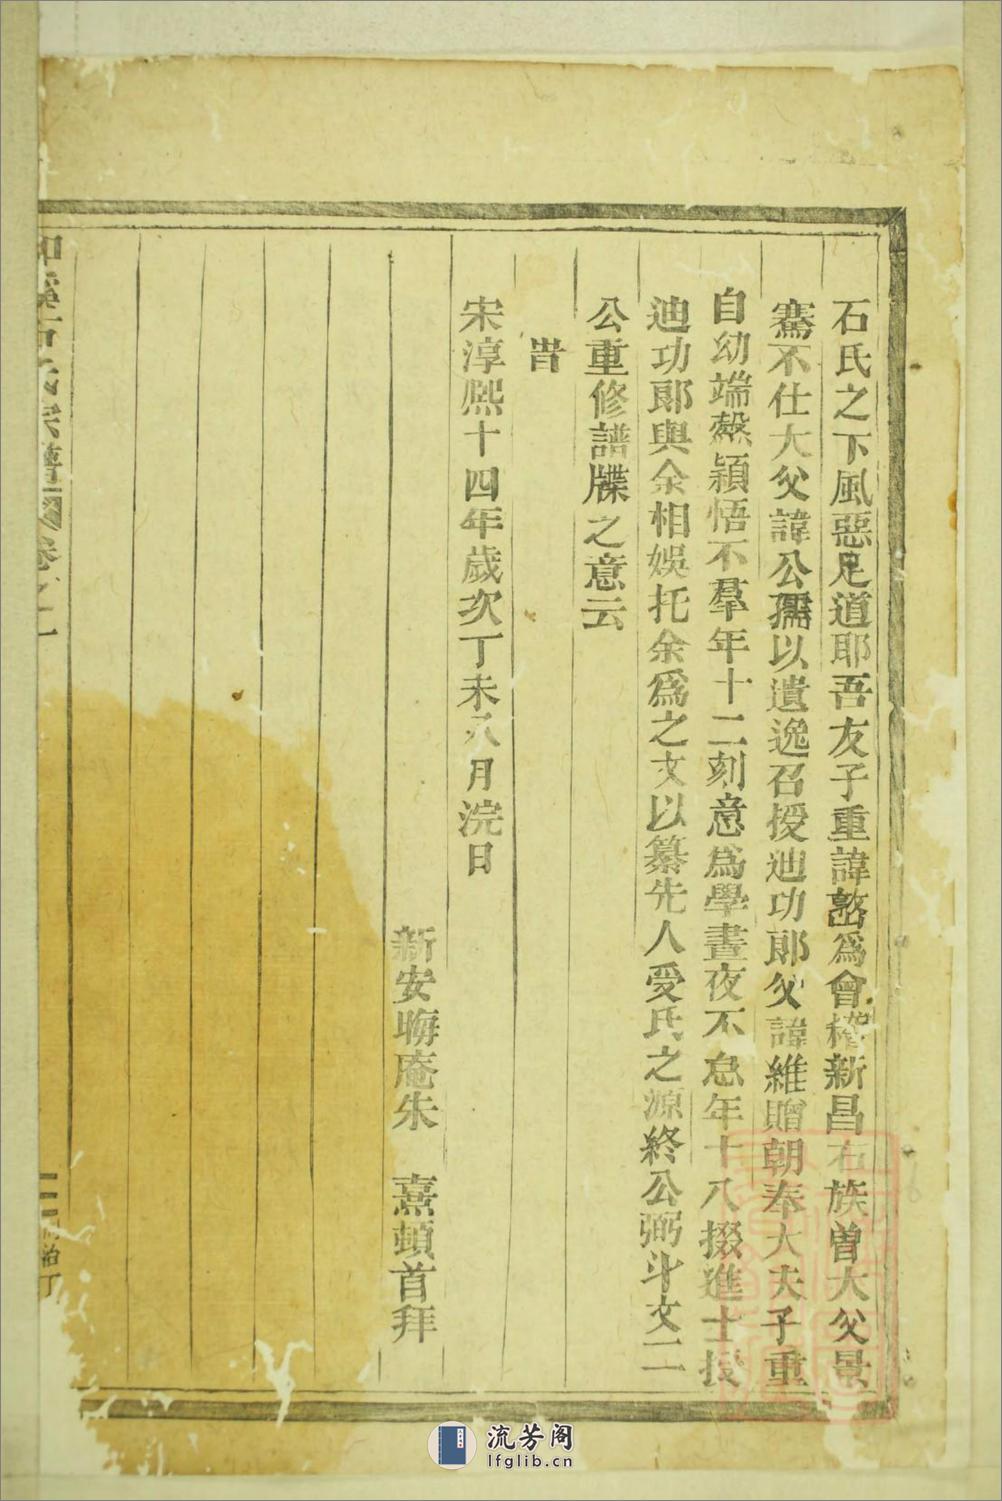 石氏之下風惡足道耶吾友子重諱𡼖爲會稽新昌右族曾大父景
騫不仕大父諱公孺以遺逸召授迪功郎父諱維贈朝奉大夫子重
自幼端慤穎悟不羣年十二刻意爲學晝夜不怠年十八掇進士授
迪功郎與余相娛托余爲之文以纂先人受氏之源終公弼斗文二
公重修譜牒之意云
旹
宋淳熙十四年歲次丁未八月浣日
新安晦庵朱 熹頓首拜
石氏宗譜 卷之一
流芳阁
lfglib.cn